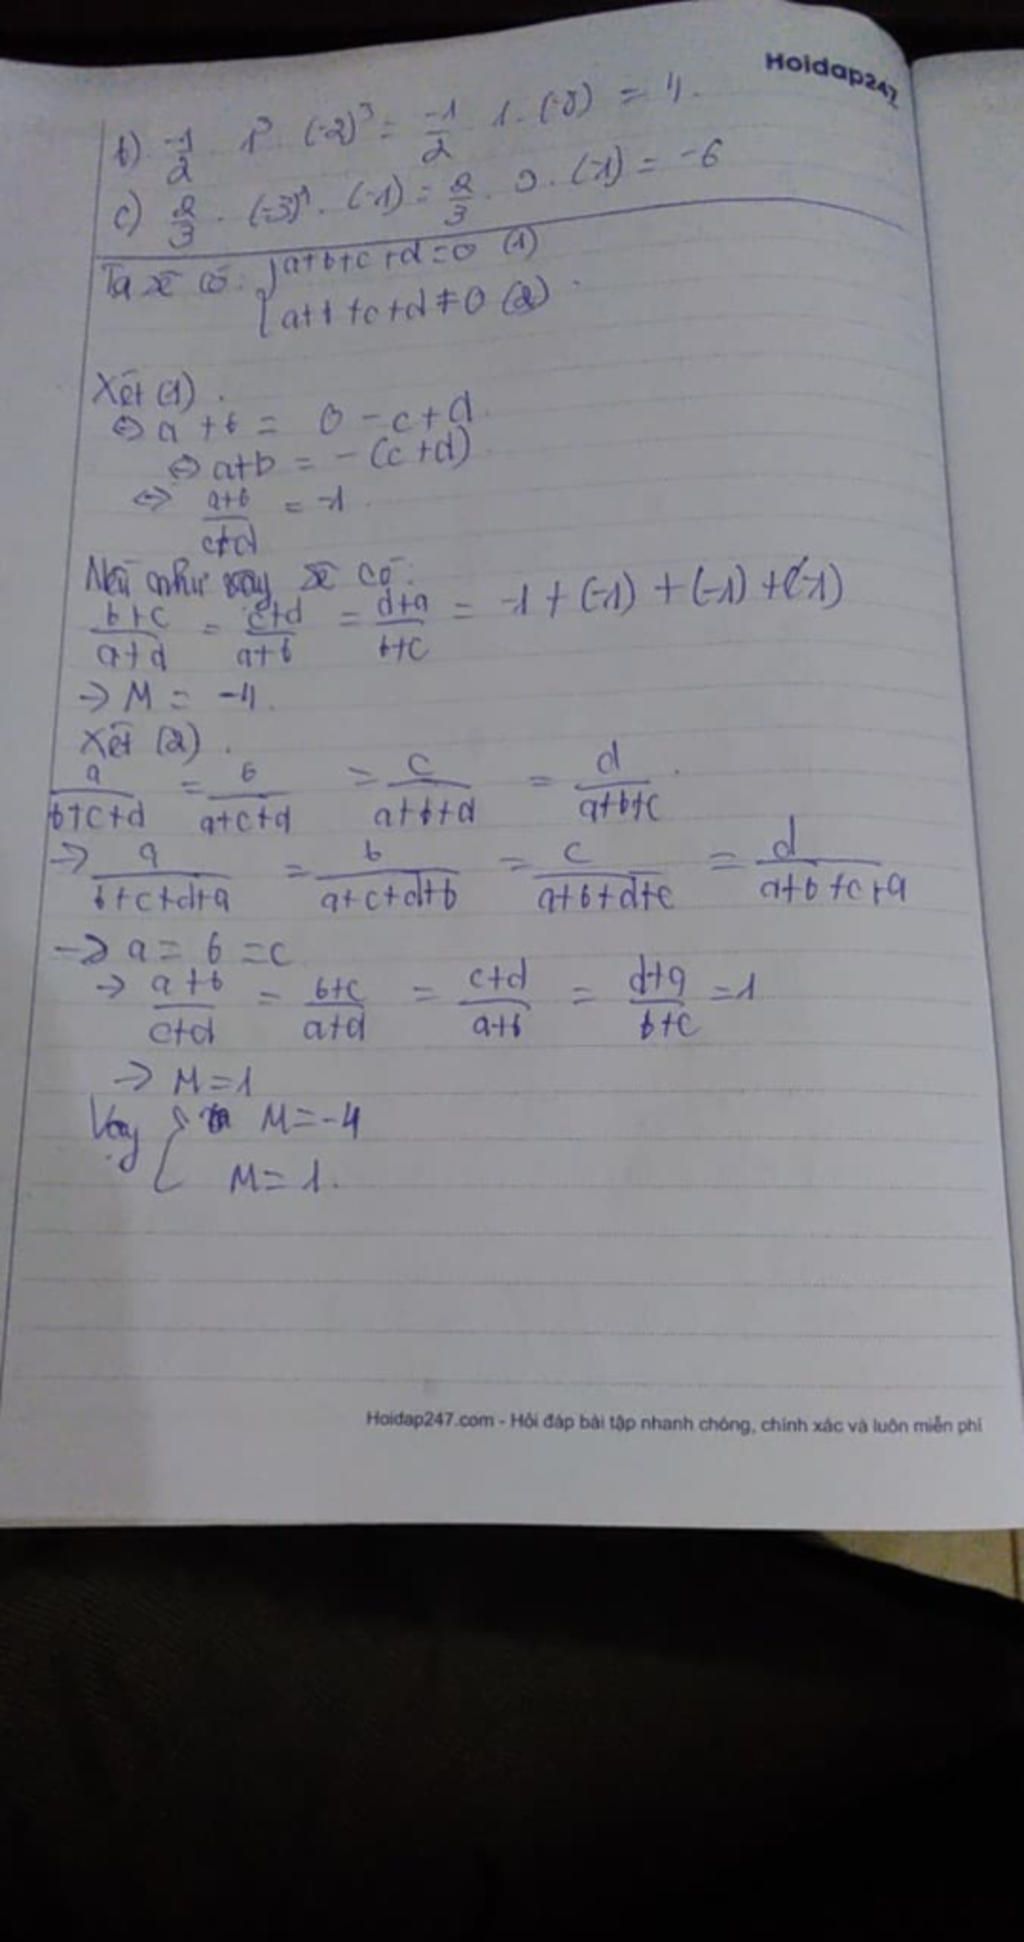 Hoidap247
b) -1/2 . 1³ . (-2)³ = -1/2 . 1 . (-8) = 4.
c) 2/3 . (-3)² . (-1) = 2/3 . 9 . (-1) = -6
Ta sẽ có: { a+b+c+d=0 (1)
a+b+c+d≠0 (2)
Xét (1).
⇔ a+b = 0-c+d
⇔ a+b = -(c+d)
⇔ a+b/c+d = -1
Nếu như vậy sẽ có:
b+c/a+d = c+d/a+b = d+a/b+c = -1+(-1)+(-1)+(-1)
→ M = -4.
Xét (2).
a/b+c+d = b/a+c+d = c/a+b+d = d/a+b+c.
→ a/b+c+d+a = b/a+c+d+b = c/a+b+d+c = d/a+b+c+a
→ a = b = c
→ a+b/c+d = b+c/a+d = c+d/a+b = d+a/b+c = 1
→ M=1
Vậy { M=-4
M=1.
Hoidap247.com - Hỏi đáp bài tập nhanh chóng, chính xác và luôn miễn phí